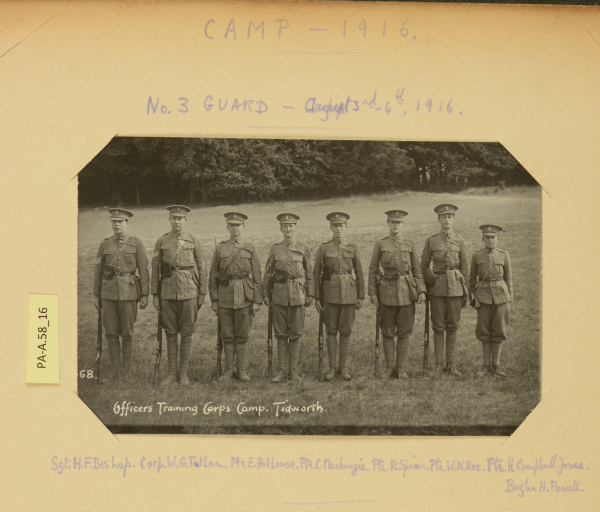 CAMP – 1916.
No. 3 GUARD – August 3rd-4th, 1916.
PA-A.58_16
68.
Officers Training Corps Camp. Tidworth.
Sgt. H.F. Bishop. Corp. W.G. Pte E. Hobhouse. Pte C. Mackenzie Pte R. Spicer. Pte W.N. Roe. Pte H. Campbell Jones.
Bugler H. Powell.